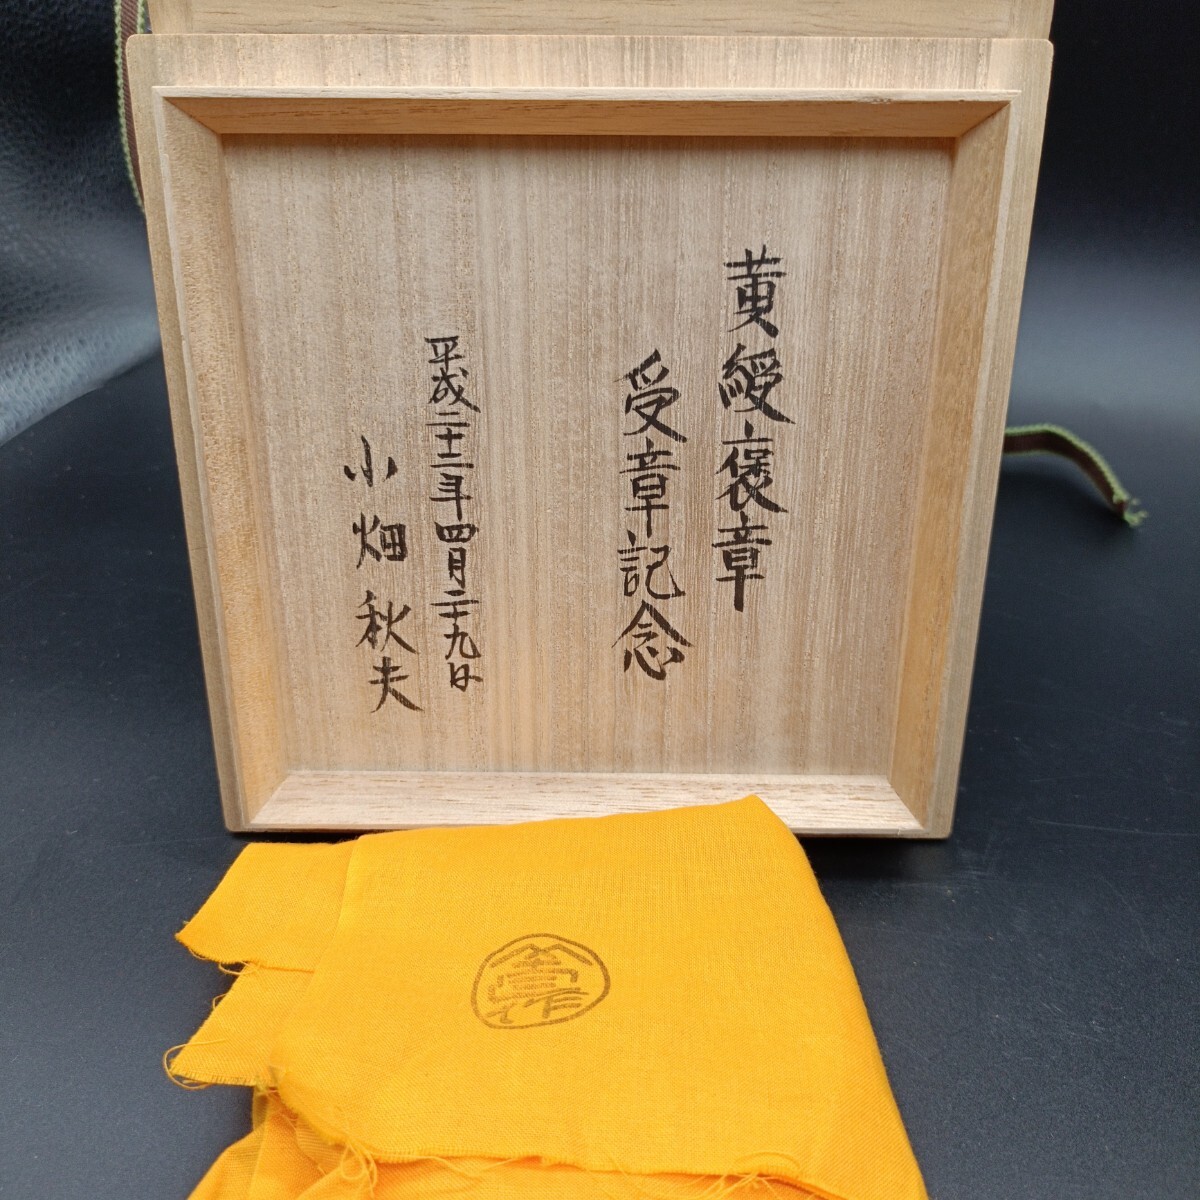 黄綬褒章
受章記念
平成二十二年四月二十九日
小畑秋夫